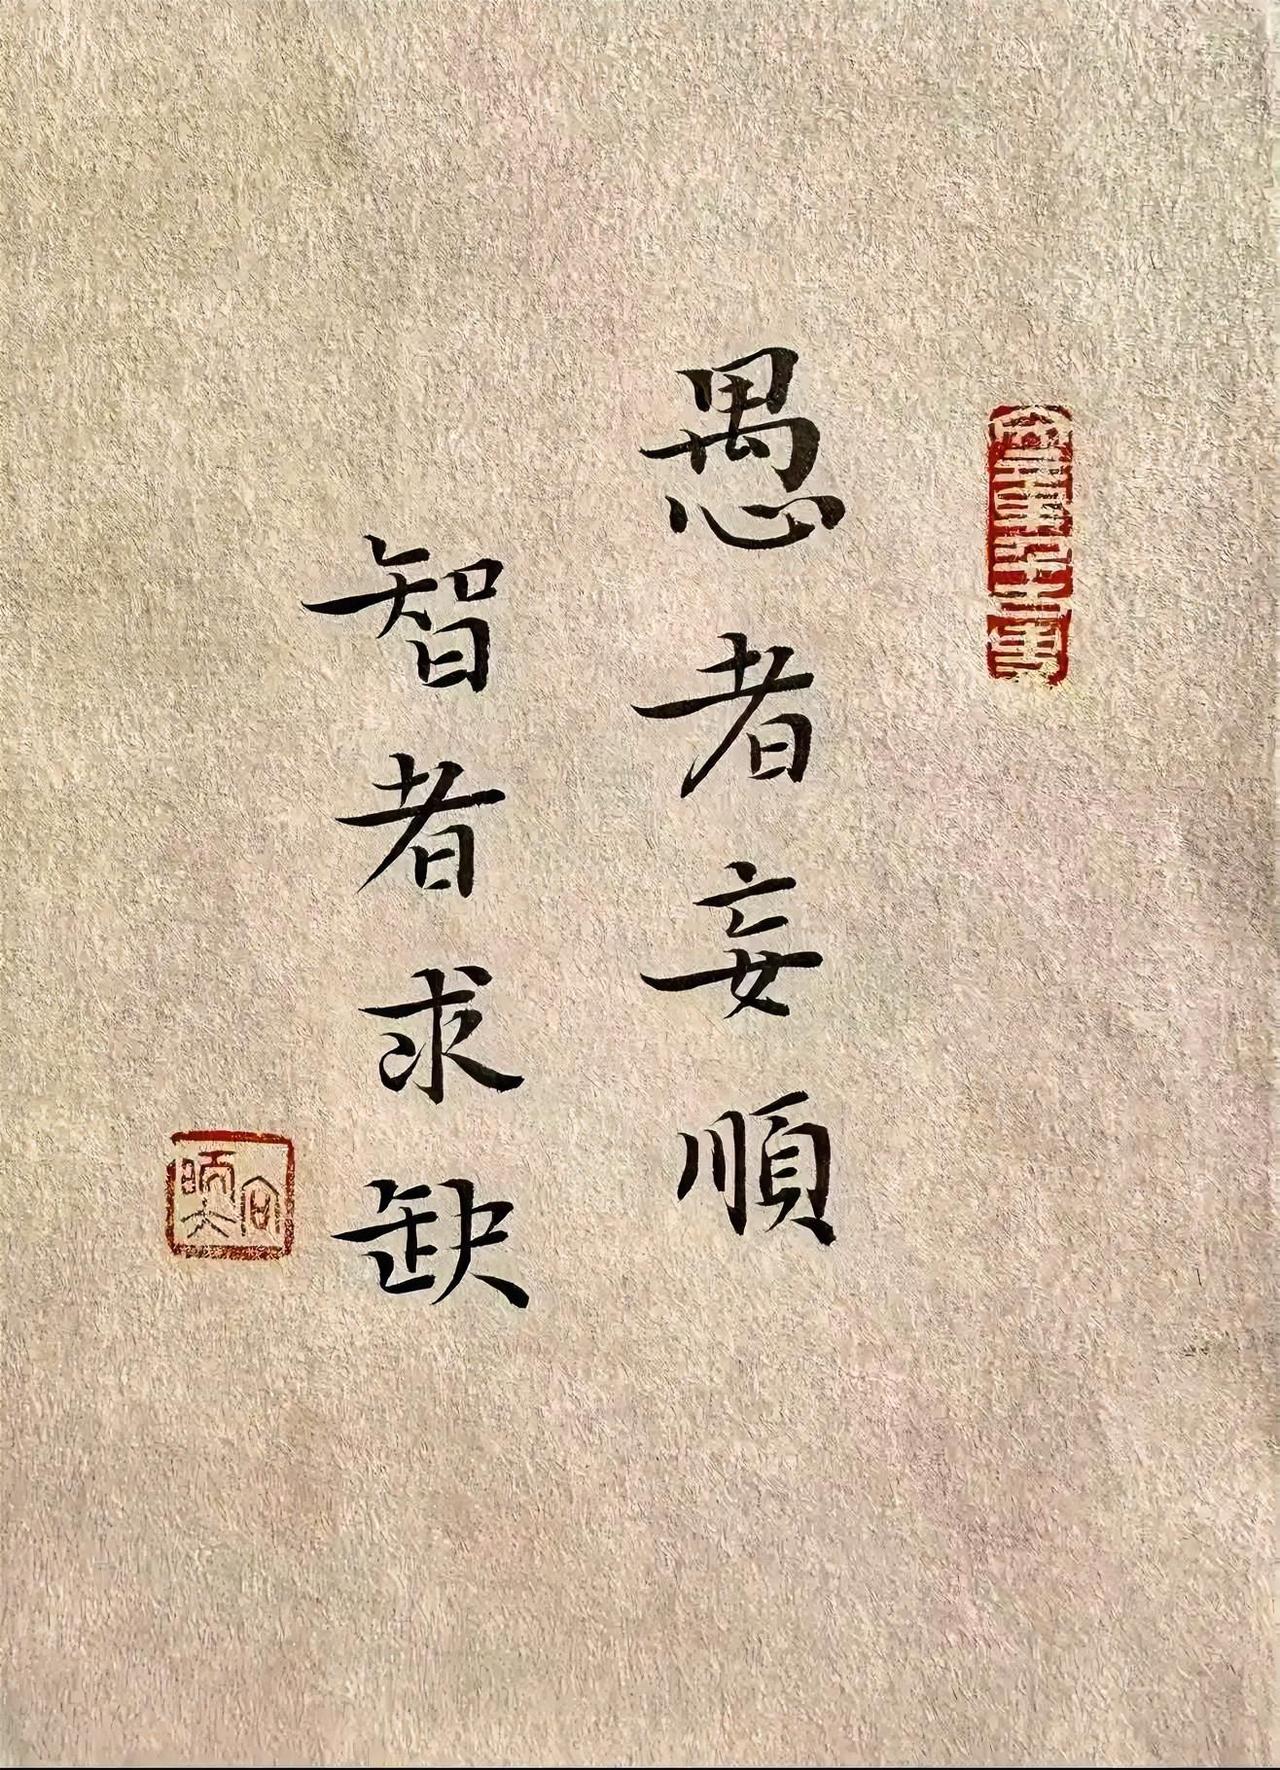 愚者妄順
智者求缺